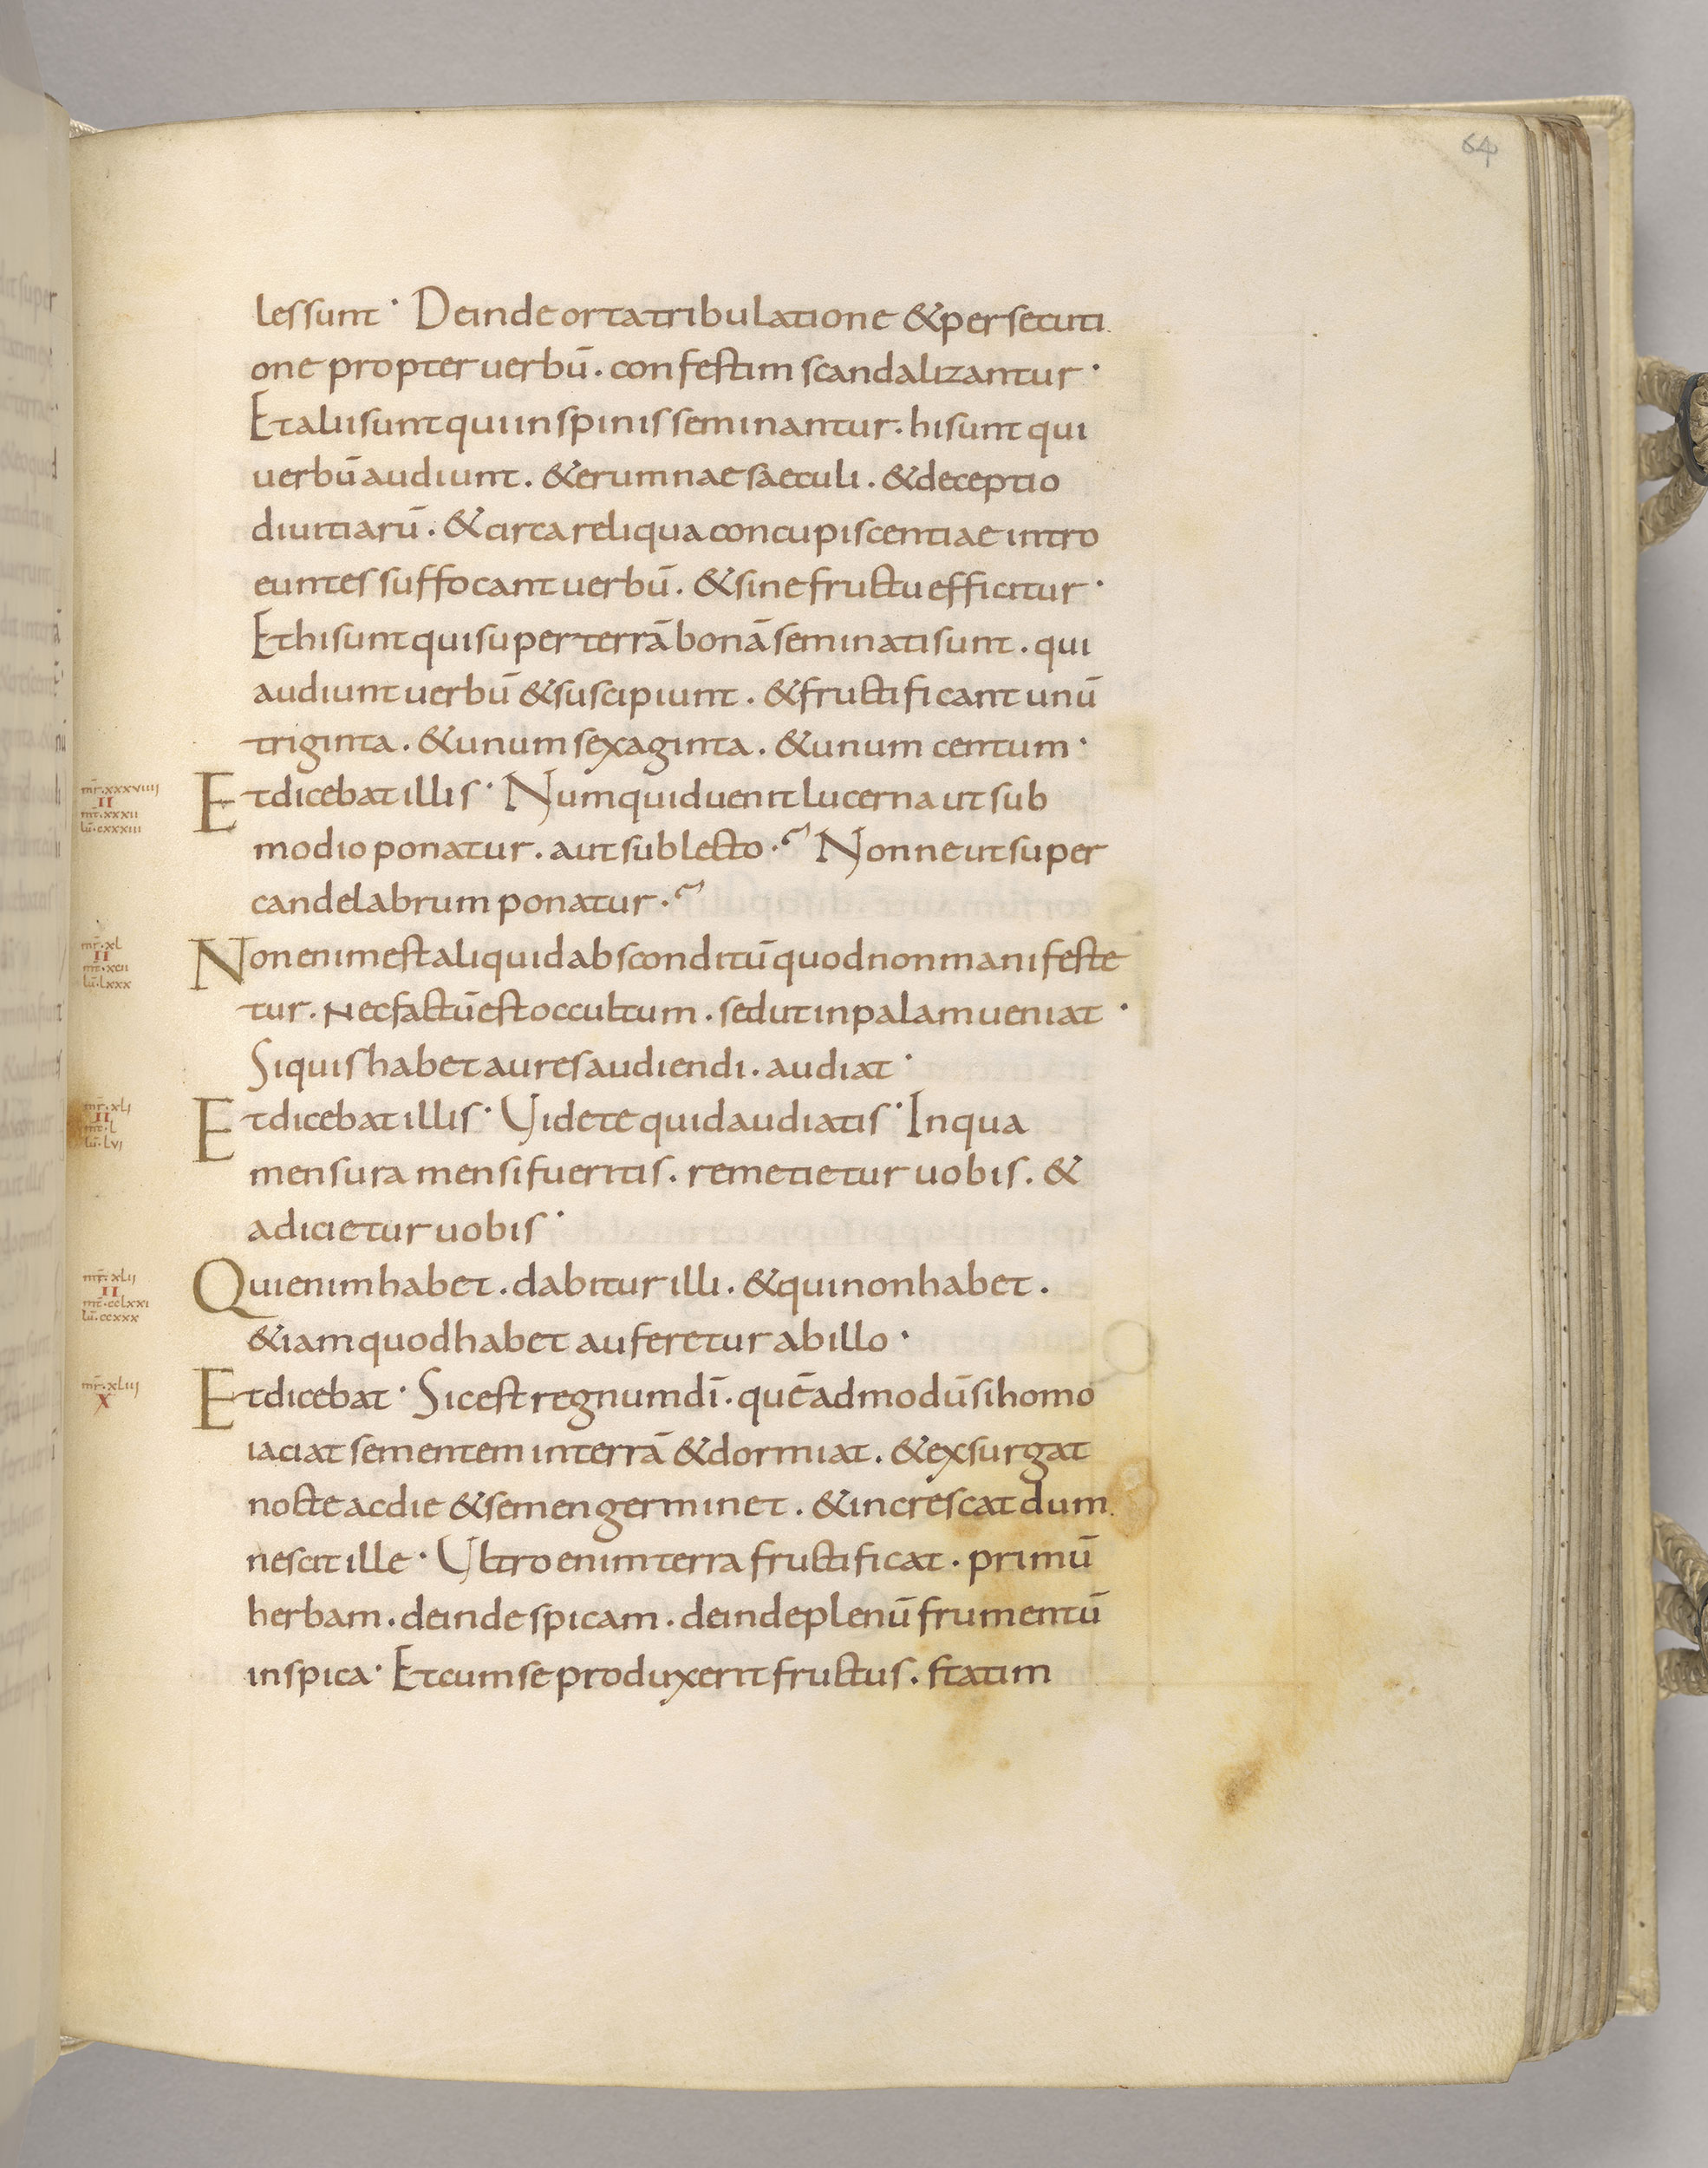 64
les sunt · Deinde orta tribulatione & persecuti
one propter uerbū . confestim scandalizantur ·
Et alii sunt qui in spinis seminantur . hi sunt qui
uerbū audiunt . & erumnae saeculi . & deceptio
diuitiarū . & circa reliqua concupiscentiae intro
euntes suffocant uerbū . & sine fructu efficitur ·
Et hi sunt qui super terrā bonā seminati sunt . qui
audiunt uerbū & suscipiunt . & fructificant unū
triginta . & unum sexaginta . & unum centum ·
mr̄ . xxxviiii
II
mt̄ . xxxii
lū . cxxxiii
Et dicebat illis · Numquid uenit lucerna ut sub
modio ponatur . aut sub lecto ? Nonne ut super
candelabrum ponatur ?
mr̄ . xl
II
mt̄ . xcii
lū . lxxx
Non enim est aliquid absconditū quod non manifeste
tur . Nec factū est occultum . sed ut in palam ueniat ·
Si quis habet aures audiendi . audiat ·
mr̄ . xli
II
mt̄ . l
lū . lvi
Et dicebat illis · Uidete quid audiatis · In qua
mensura mensi fueritis . remetietur uobis . &
adicietur uobis ·
mr̄ . xlii
II
mt̄ . cclxxi
lū . ccxxx
Qui enim habet . dabitur illi . & qui non habet .
& iam quod habet auferetur ab illo ·
mr̄ . xliii
X
Et dicebat · Sic est regnum dī . quēadmodū si homo
iaciat sementem in terrā & dormiat . & exsurgat
nocte ac die & semen germinet . & increscat dum
nescit ille · Ultro enim terra fructificat . primū
herbam . deinde spicam . deinde plenū frumentū
in spica · Et cum se produxerit fructus . statim